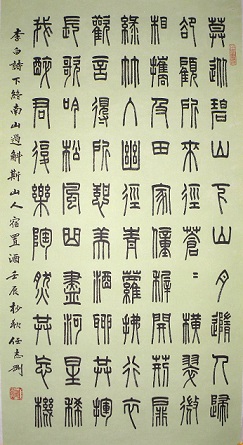 莫從碧山下山月隨人歸
卻顧所來徑蒼〻橫翠微
相攜及田家僮稚開荊扉
綠竹入幽徑青蘿拂行衣
歡言得所憩美酒聊共揮
長歌吟松風曲盡河星稀
我醉君復樂陶然共忘機
李白詩下終南山過斛斯山人宿置酒壬辰杪秋任